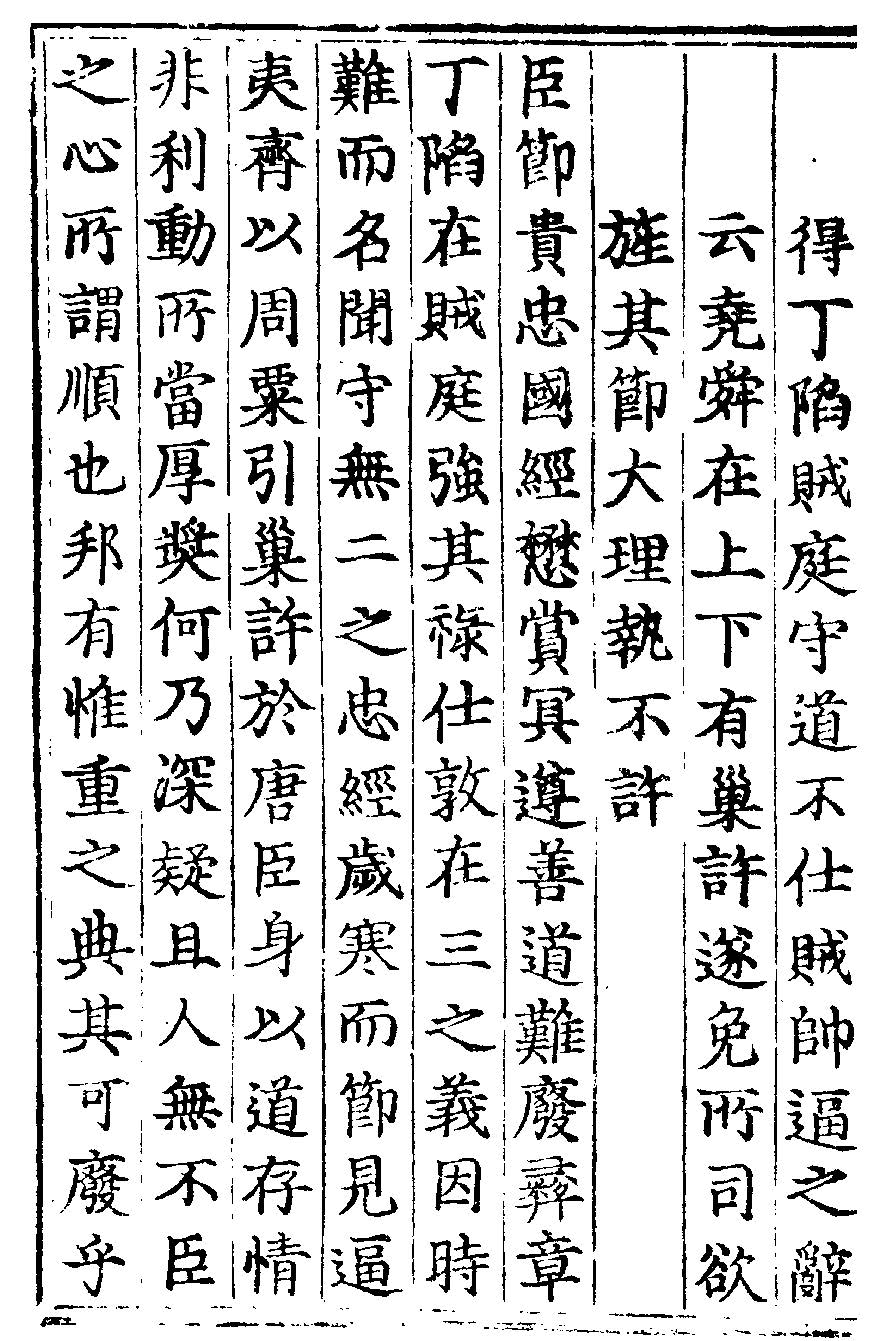 得丁陷賊庭守道不仕賊帥逼之辭
云堯舜在上下有巢許遂免所司欲
旌其節大理執不許
臣節貴忠國經懋賞冥遵善道難廢彛章
丁陷在賊庭強其祿仕敦在三之義因時
難而名聞守無二之忠經歲寒而節見逼
夷齊以周粟引巢許於唐臣身以道存情
非利動所當厚奬何乃深疑且人無不臣
之心所謂順也邦有惟重之典其可廢乎